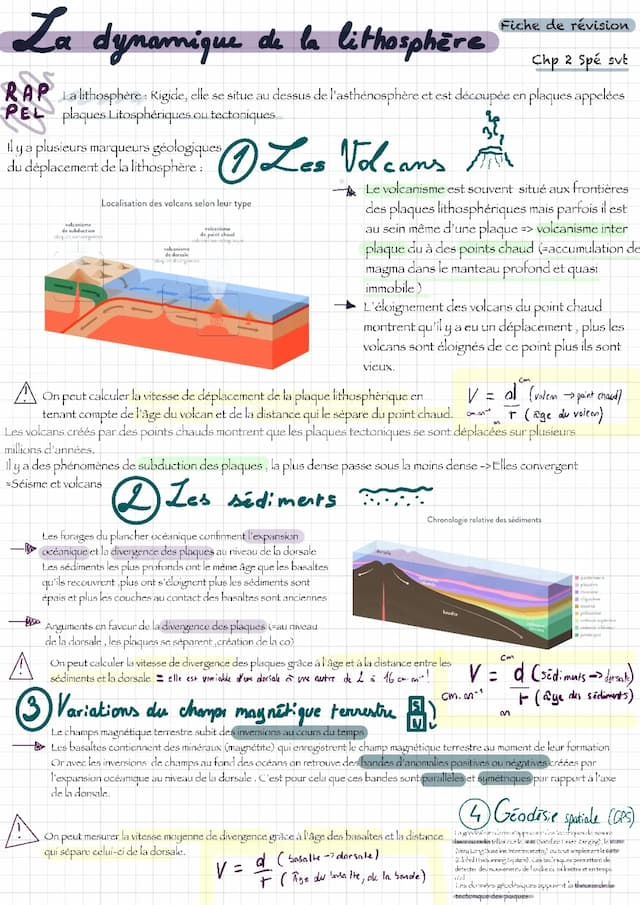 La dynamique de la lithosphère
Fiche de révision
Chp 2 Spé svt
RAP
PEL
La lithosphère : Rigide, elle se situe au dessus de l'asthénosphère et est découpée en plaques appelées
plaques Litosphériques ou tectoniques
Il y a plusieurs marqueurs géologiques
du déplacement de la lithosphère :
1 Les Volcans
Localisation des volcans selon leur type
volcanisme
de subduction
volcanisme
de dorsale
volcanisme
de point chaud
Le volcanisme est souvent situé aux frontières
des plaques lithosphériques mais parfois il est
au sein même d'une plaque => volcanisme inter
plaque du à des points chaud (=accumulation de
magma dans le manteau profond et quasi
immobile )
L'éloignement des volcans du point chaud
montrent qu'il y a eu un déplacement , plus les
volcans sont éloignés de ce point plus ils sont
vieux.
On peut calculer la vitesse de déplacement de la plaque lithosphérique en
tenant compte de l'âge du volcan et de la distance qui le sépare du point chaud.
cm
V = d (volcan → point chaud)
cm.an⁻¹ T (âge du volcan)
an
Les volcans créés par des points chauds montrent que les plaques tectoniques se sont déplacées sur plusieurs
millions d'années.
Il y a des phénomènes de subduction des plaques , la plus dense passe sous la moins dense -> Elles convergent
=Séisme et volcans
2 Les sédiments
Chronologie relative des sédiments
dorsale
basalte
Les forages du plancher océanique confirment l'expansion
océanique et la divergence des plaques au niveau de la dorsale
Les sédiments les plus profonds ont le même âge que les basaltes
qu'ils recouvrent ,plus ont s'éloignent plus les sédiments sont
épais et plus les couches au contact des basaltes sont anciennes
Arguments en faveur de la divergence des plaques (=au niveau
de la dorsale , les plaques se séparent ,création de la co)
On peut calculer la vitesse de divergence des plaques grâce à l'âge et à la distance entre les
sédiments et la dorsale = elle est variable d'un dorsale à une autre de 2 à 16 cm.an⁻¹!
cm
V = d (sédiments → dorsale)
cm.an⁻¹ T (âge des sédiments)
an
3 Variations du champ magnétique terrestre
S
N
Le champs magnétique terrestre subit des inversions au cours du temps
Les basaltes contiennent des minéraux (magnétite) qui enregistrent le champ magnétique terrestre au moment de leur formation
Or avec les inversions de champs au fond des océans on retrouve des bandes d'anomalies positives ou négatives créées par
l'expansion océanique au niveau de la dorsale . C'est pour cela que ces bandes sont parallèles et symétriques par rapport à l'axe
de la dorsale.
On peut mesurer la vitesse moyenne de divergence grâce à l'âge des basaltes et la distance
qui sépare celui-ci de la dorsale.
V = d (basalte → dorsale)
T (âge du basalte, de la bande)
4 Géodésie spatiale (GPS)
Les données géodésiques appuient la théorie de la
tectonique des plaques